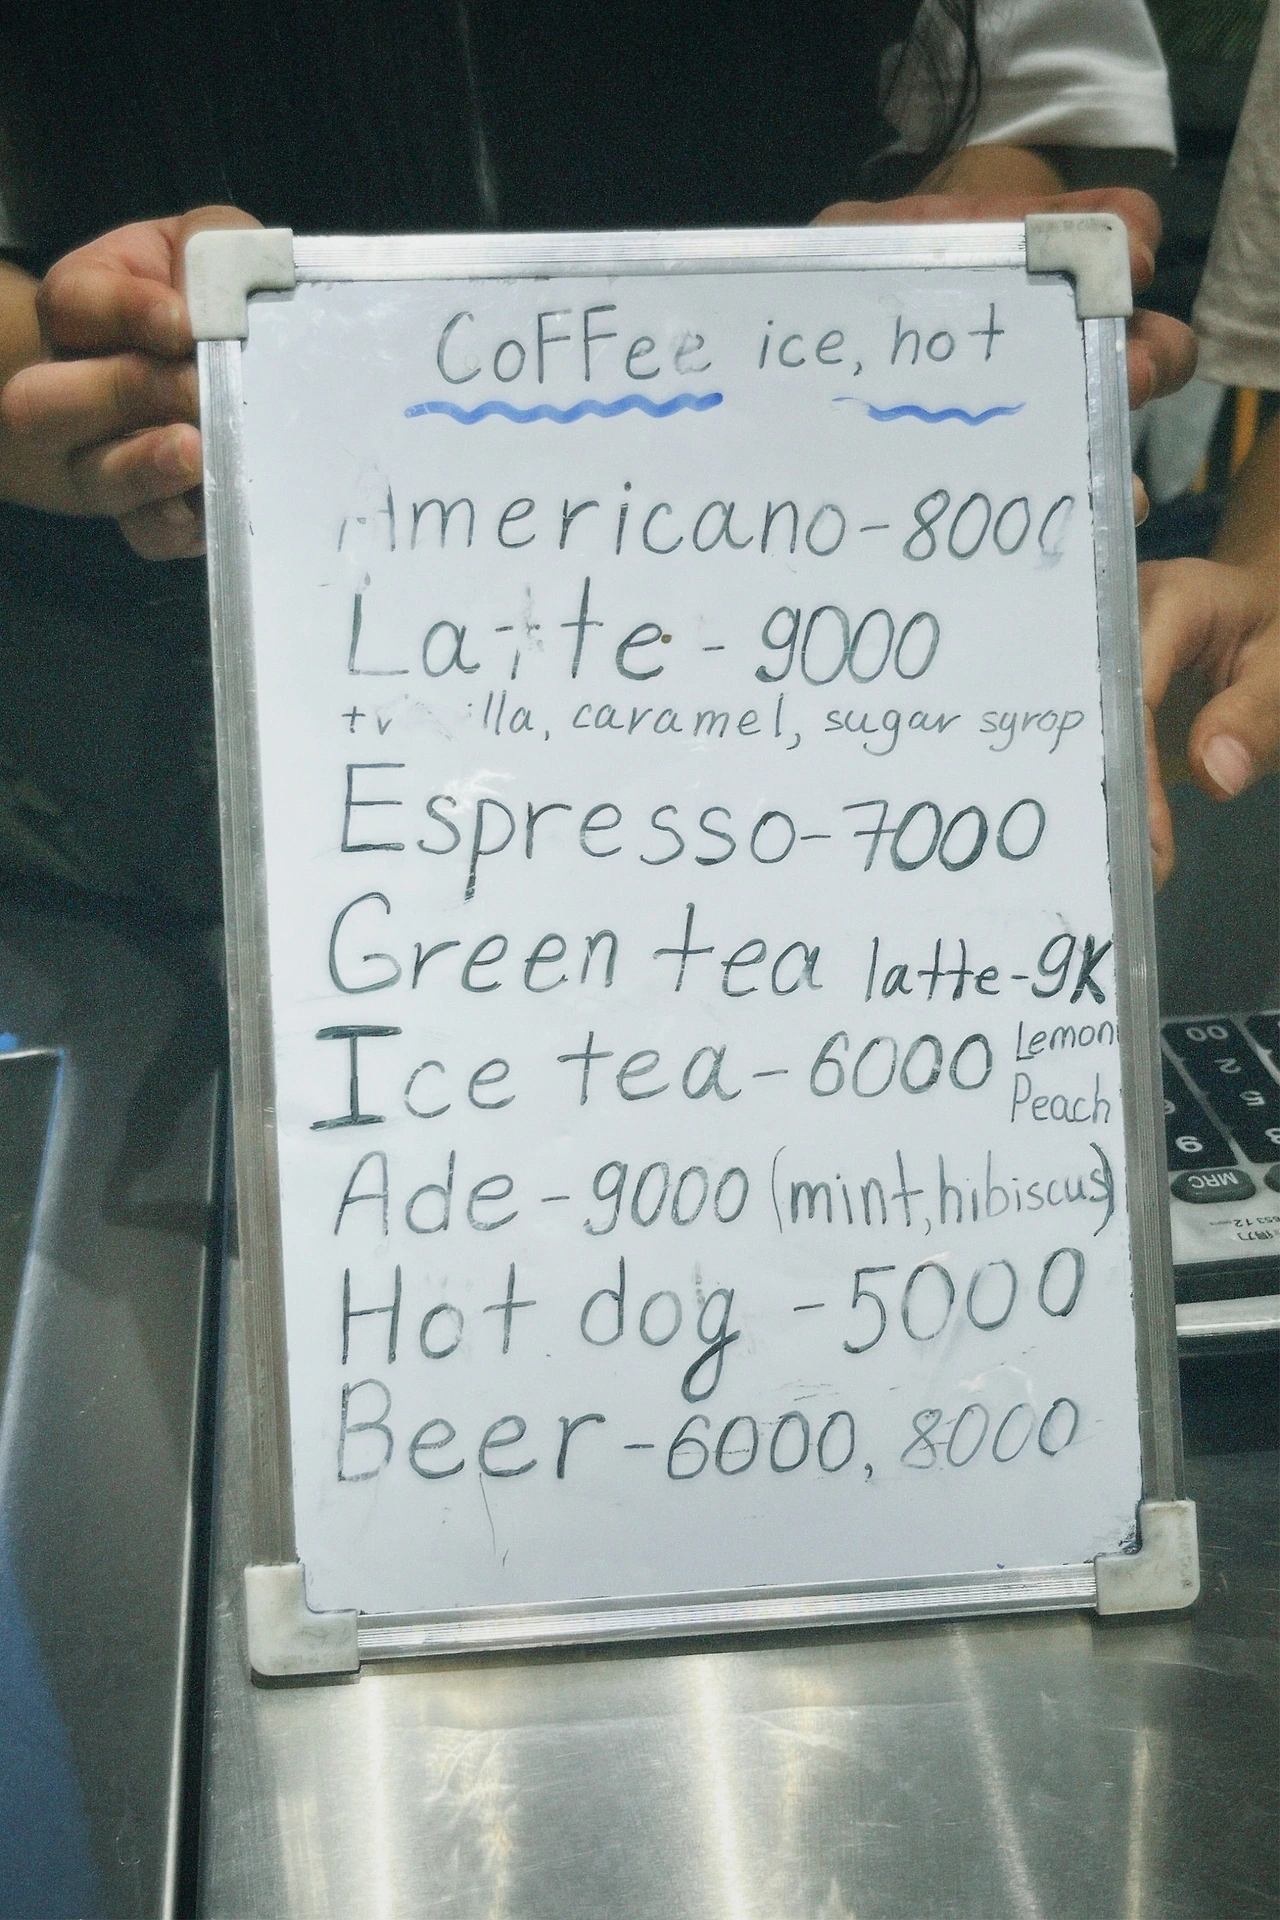 CoFFee ice, hot
Americano-8000
Latte - 9000
caramel, sugar syrop
Espresso-7000
Green tea latte-9K
Ice tea-6000 Lemon
Peach
Ade-9000 (mint, hibiscus)
Hot dog -5000
Beer-6000, 8000
00
2
5
6
9
3
MRC